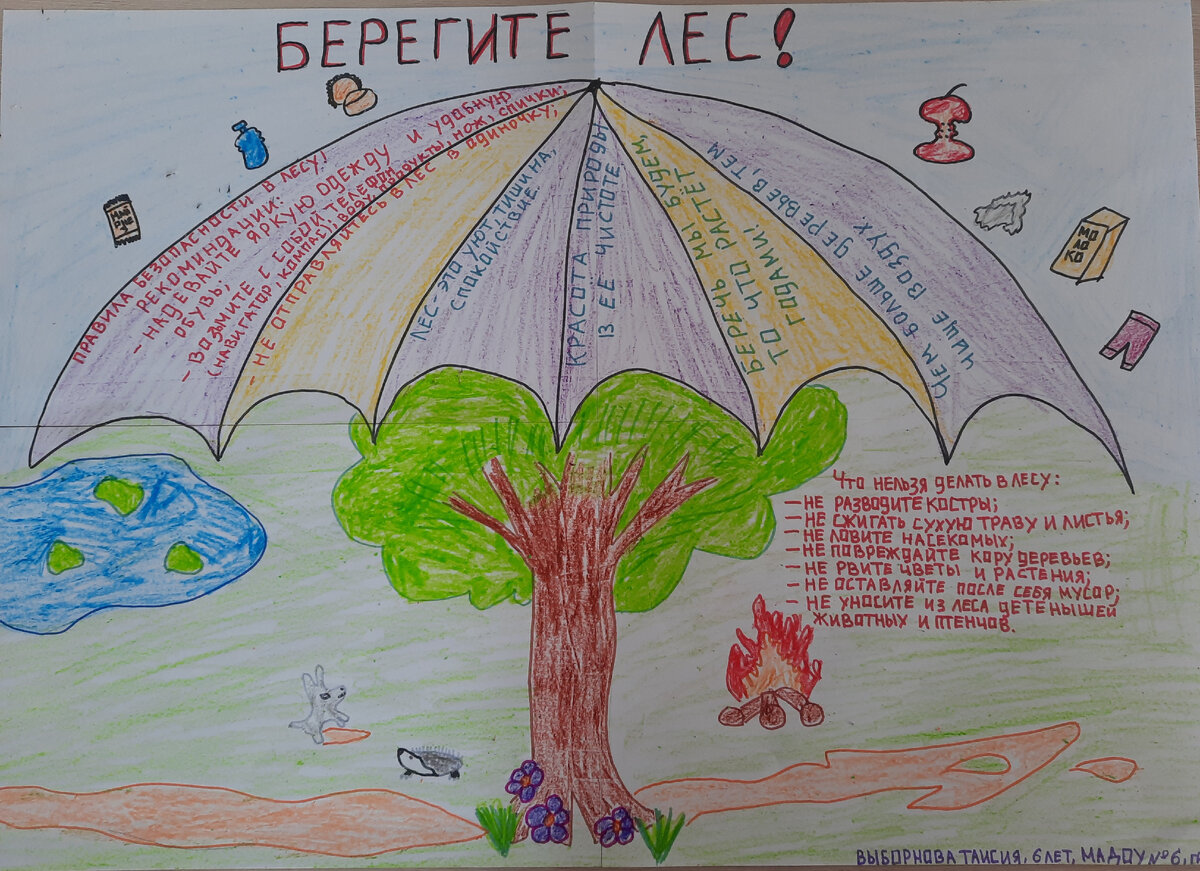 БЕРЕГИТЕ ЛЕС!
ПРАВИЛА БЕЗОПАСНОСТИ В ЛЕСУ!
РЕКОМИНДАЦИИ:
- НАДЕВАЙТЕ ЯРКУЮ ОДЕЖДУ И УДАБНУЮ
ОБУВЬ;
- ВОЗЬМИТЕ С СОБОЙ ТЕЛЕФОН
(НАВИГАТОР, КОМПАС), ВОДУ, ПРОДУКТЫ, НОЖ, СПИЧКИ;
- НЕ ОТПРАВЛЯЙТЕСЬ В ЛЕС В ОДИНОЧКУ;
ЛЕС - ЭТА УЮТ, ТИШИНА,
СПОКОЙСТВИЕ.
КРАСОТА ПРИРОДЫ
В ЕЕ ЧИСТОТЕ
БЕРЕЧЬ МЫ БУДЕМ,
ТО ЧТО РАСТЁТ
ГОДАМИ!
ЧЕМ БОЛЬШЕ ДЕРЕВЬЕВ, ТЕМ
ЧИЩЕ ВОЗДУХ
МОЛОКО
ЧТО НЕЛЬЗЯ ДЕЛАТЬ В ЛЕСУ:
- НЕ РАЗВОДИТЕ КОСТРЫ;
- НЕ СЖИГАТЬ СУХУЮ ТРАВУ И ЛИСТЬЯ;
- НЕ ЛОВИТЕ НАСЕКОМЫХ;
- НЕ ПОВРЕЖДАЙТЕ КОРУ ДЕРЕВЬЕВ;
- НЕ РВИТЕ ЦВЕТЫ И РАСТЕНИЯ;
- НЕ ОСТАВЛЯЙТЕ ПОСЛЕ СЕБЯ МУСОР;
- НЕ УНОСИТЕ ИЗ ЛЕСА ДЕТЕНЫШЕЙ
ЖИВОТНЫХ И ПТЕНЧОВ.
ВЫБОРНОВА ТАИСИЯ, 6 ЛЕТ, МАДОУ №6,